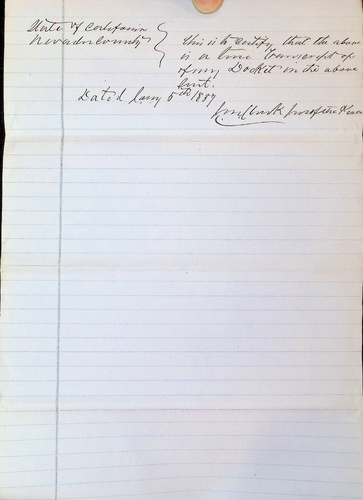 State of California
Nevada County } This is to certify that the above
is a true transcript of
of my Docket in the above
Suit.
Dated Jany 5th 1887
Justice of Peace